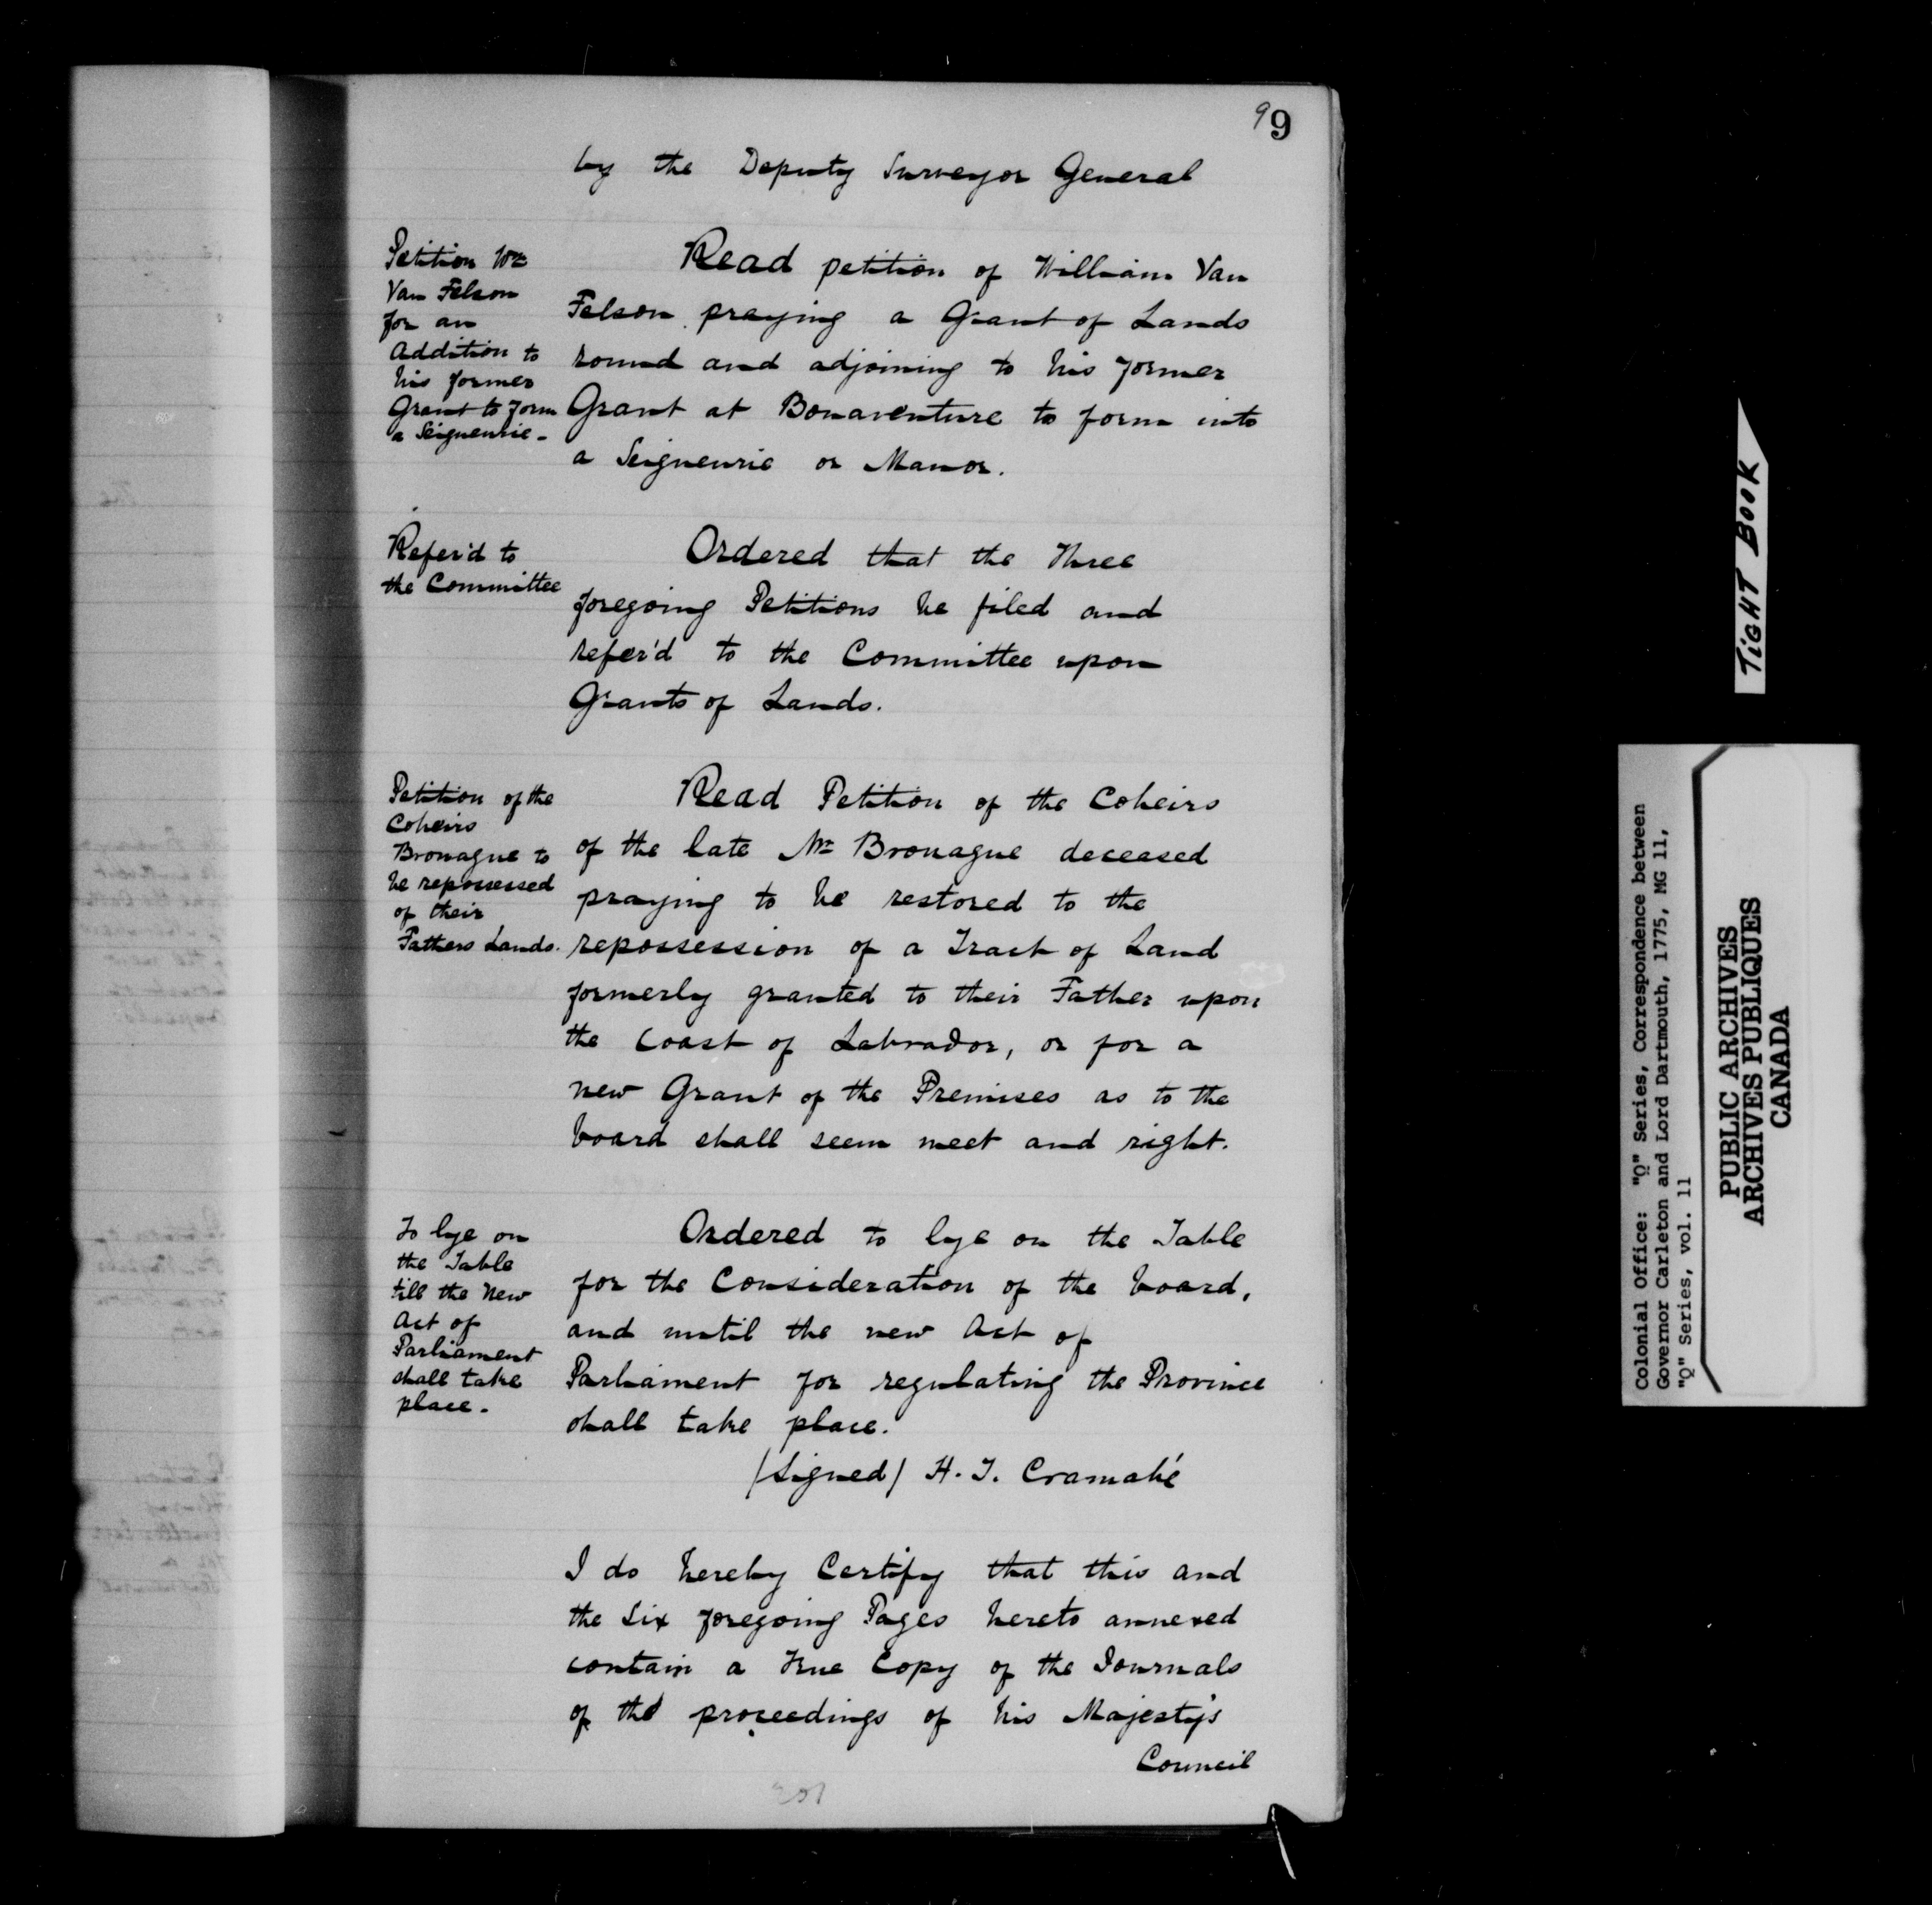 9 9
by the Deputy Surveyor General
Petition Wm
Van Felson
for an
Addition to
his former
Grant to form
a Seigneurie -
Read petition of William Van
Felson praying a Grant of Lands
round and adjoining to his former
Grant at Bonaventure to form into
a Seigneurie or Manor.
Refer'd to
the Committee
Ordered that the Three
foregoing Petitions be filed and
refer'd to the Committee upon
Grants of Lands.
Petition of the
Coheirs
Brouague to
be repossessed
of their
Fathers Lands.
Read Petition of the Coheirs
of the late Mr Brouague deceased
praying to be restored to the
repossession of a Tract of Land
formerly granted to their Father upon
the Coast of Labrador, or for a
new Grant of the Premises as to the
board shall seem meet and right.
To lye on
the Table
till the New
Act of
Parliament
shall take
place -
Ordered to lye on the Table
for the Consideration of the board,
and until the new Act of
Parliament for regulating the Province
shall take place.
(Signed) H. T. Cramahé
I do hereby Certify that this and
the Six foregoing Pages hereto annexed
contain a True Copy of the Journals
of the proceedings of his Majesty's
Council
TIGHT BOOK
Colonial Office: "Q" Series, Correspondence between
Governor Carleton and Lord Dartmouth, 1775, MG 11,
"Q" Series, vol. 11
PUBLIC ARCHIVES
ARCHIVES PUBLIQUES
CANADA